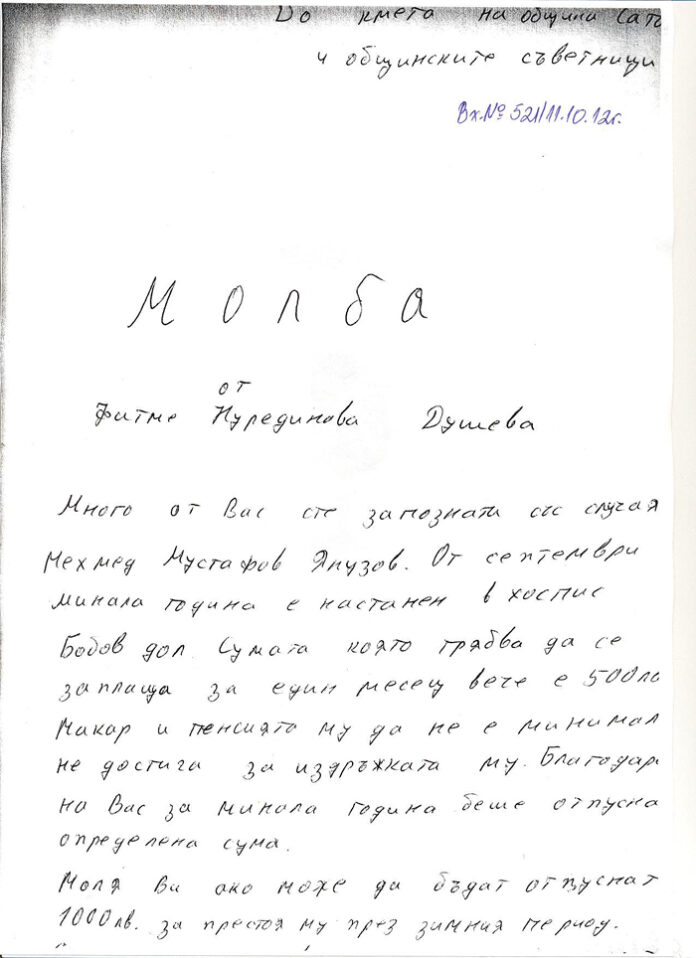 До кмета на община Сато
и общинските съветници
Вх.№ 521/11.10.12г.
Молба
от
Фитме Нурединова Душева
Много от Вас сте запознати със случая
Мехмед Мустафов Япузов. От септември
минала година е настанен в хоспис
Бобов дол. Сумата която трябва да се
заплаща за един месец вече е 500лв
Макар и пенсията му да не е минимал
не достига за издръжката му. Благодар
на Вас за минала година беше отпусна
определена сума.
Моля Ви ако може да бъдат отпуснат
1000лв. за престоя му през зимния период.